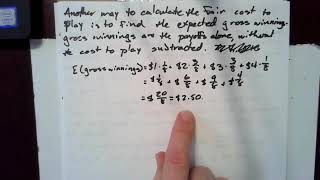 Another way to calculate the fair cost to
play is to find the expected gross winnings.
gross winnings are the payoffs alone, without
the cost to play subtracted.
E(gross winnings) = $1·1/8 + $2·3/8 + $3·3/8 + $4·1/8
= $1/8 + $6/8 + $9/8 + $4/8
= $20/8 = $2.50.